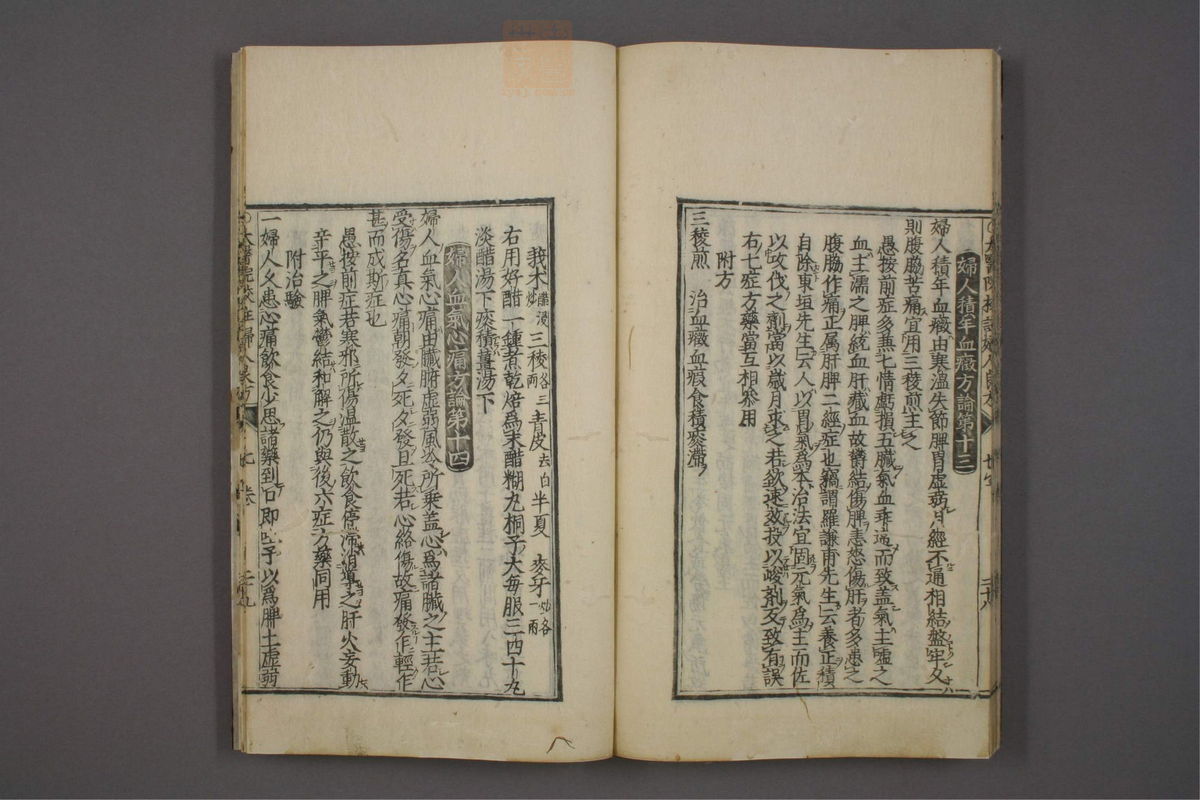 婦人積年血癥方論第十三
婦人積年血癥由寒溫失節脾胃虛弱月經不通相結盤牢久
則腹脇苦痛宜用三稜煎主之
愚按前症多兼七情虧損五臟氣血乖違而致盖氣主噓之
血主濡之脾統血肝藏血故鬱結傷脾恚怒傷肝者多患之
腹脇作痛正属肝脾二經症也竊謂羅謙甫先生云養正積
自除東垣先生云人以胃氣爲本治法宜固元氣爲主而佐
以攻伐之劑當以歲月求之若欲速效投以峻劑反致有誤
右七症方藥當互相叅用
附方
三稜煎 治血癥血瘕食積痰滯
莪朮 三稜各三兩 青皮去白 半夏 麥牙炒各一兩
右用好醋一鍾煮乾焙爲末醋糊丸桐子大每服三四十丸
淡醋湯下痰積薑湯下
婦人血氣心痛方論第十四
婦人血氣心痛由臟腑虛弱風冷所乘盖心爲諸臟之主若心
受傷名真心痛朝發夕死夕發旦死若心絡傷故痛發作輕作
甚而成斯症也
愚按前症若寒邪所傷溫散之飲食停滯消導之肝火妄動
辛平之脾氣鬱結和解之仍與後六症方藥同用
附治驗
一婦人久患心痛飲食少思諸藥到口即吐予以爲脾土虛弱